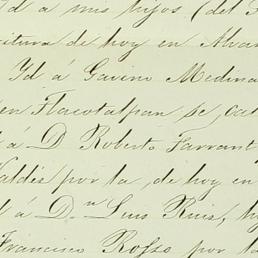 Id a mis hijos (del
critura de hoy en Alvar
Id á Gavino Medina
en Tlacotalpan se cat
d á D Roberto Farrant
Valdés por la de hoy en
d á D.n Luis Ruis, h
Francisco Rosso por la